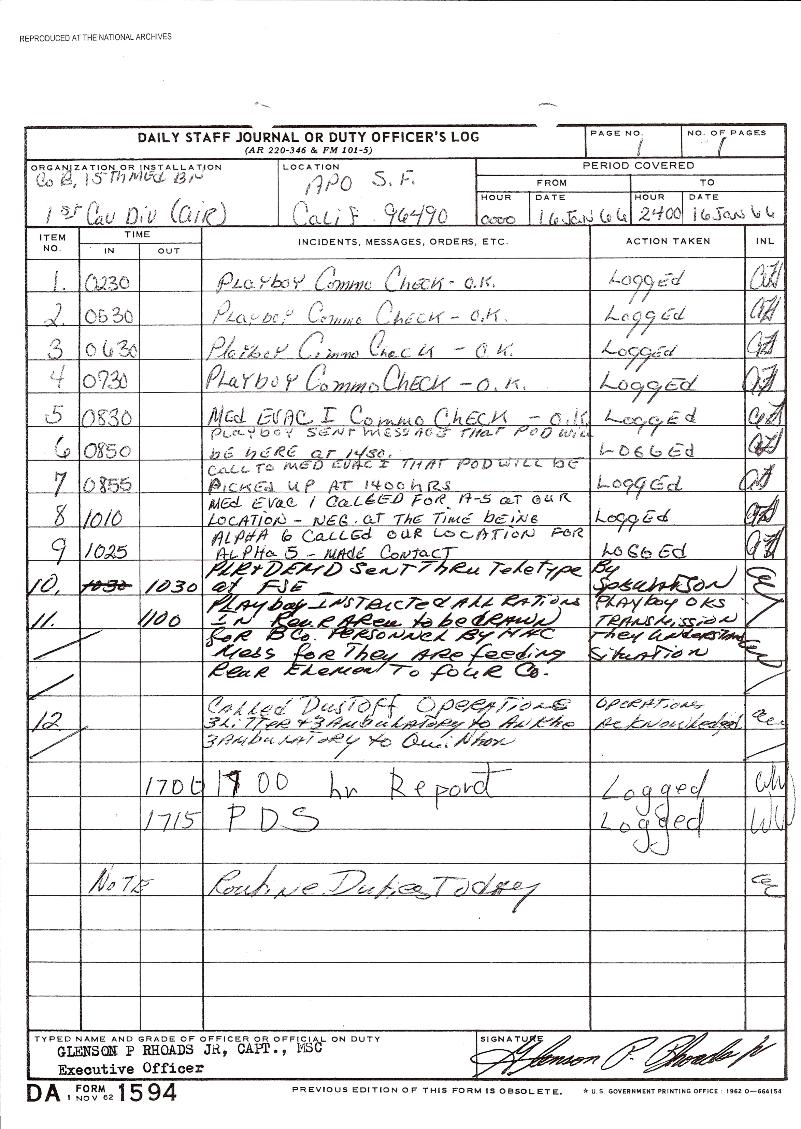 REPRODUCED AT THE NATIONAL ARCHIVES
DAILY STAFF JOURNAL OR DUTY OFFICER'S LOG
(AR 220-346 & FM 101-5)
PAGE NO. 1
NO. OF PAGES 1
ORGANIZATION OR INSTALLATION
Co B, 15TH MED BN
1st Cav Div (AIR)
LOCATION
APO S.F.
Calif 96490
PERIOD COVERED
FROM TO
HOUR DATE HOUR DATE
0000 16 JAN 66 2400 16 JAN 66
ITEM NO. TIME INCIDENTS, MESSAGES, ORDERS, ETC. ACTION TAKEN INL
IN OUT
1. 0230 PLAYBOY Commo CHECK - O.K. Logged
2 0530 PLAYBOY Commo CHECK - O.K. Logged
3 0630 Playboy Commo Check - O.K. Logged
4 0730 PLAYBOY Commo CHECK - O.K. Logged
5 0830 Med EVAC I Commo CHECK - O.K. Logged
6 0850 PLAYBOY SENT MESSAGE THAT POD WILL
BE HERE AT 1450. LOGGEd
7 0855 CALL TO MED EVAC I THAT POD WILL BE
PICKED UP AT 1400 HRS Logged
8 1010 MEd EVAC I CALLED FOR A-5 AT OUR
LOCATION - NEG. AT THE TIME BEING Logged
9 1025 ALPHA 6 CALLED OUR LOCATION FOR
ALPHA 5 - MADE CONTACT LOGGEd
10. 1030 1030 SENT THRU TELETYPE By
at FSE
11. 1100 PLAYboy INSTRUCTED All RATIONS PLAYboy OKS
IN REAR AREA to be DRAWN TRANSMISSION
for B Co. PERSONNEL By HHC They UNDERSTAND
Mess for They ARE feeding SITUATION
REAR Element To four Co.
12 Called DUSTOFF OPERATIONS OPERATIONS
3 LITTER + 3 AMBULATORY to AN Khe Acknowledged
3 AMBULATORY to Qui Nhon
1700 1700 hr Report Logged
1715 PDS Logged
NOTE Routine Duties Today
TYPED NAME AND GRADE OF OFFICER OR OFFICIAL ON DUTY
GLENSON P RHOADS JR, CAPT., MSC
Executive Officer
SIGNATURE
Glenson P. Rhoads Jr
DA FORM 1 NOV 62 1594
PREVIOUS EDITION OF THIS FORM IS OBSOLETE.
* U.S. GOVERNMENT PRINTING OFFICE : 1962 O—664154